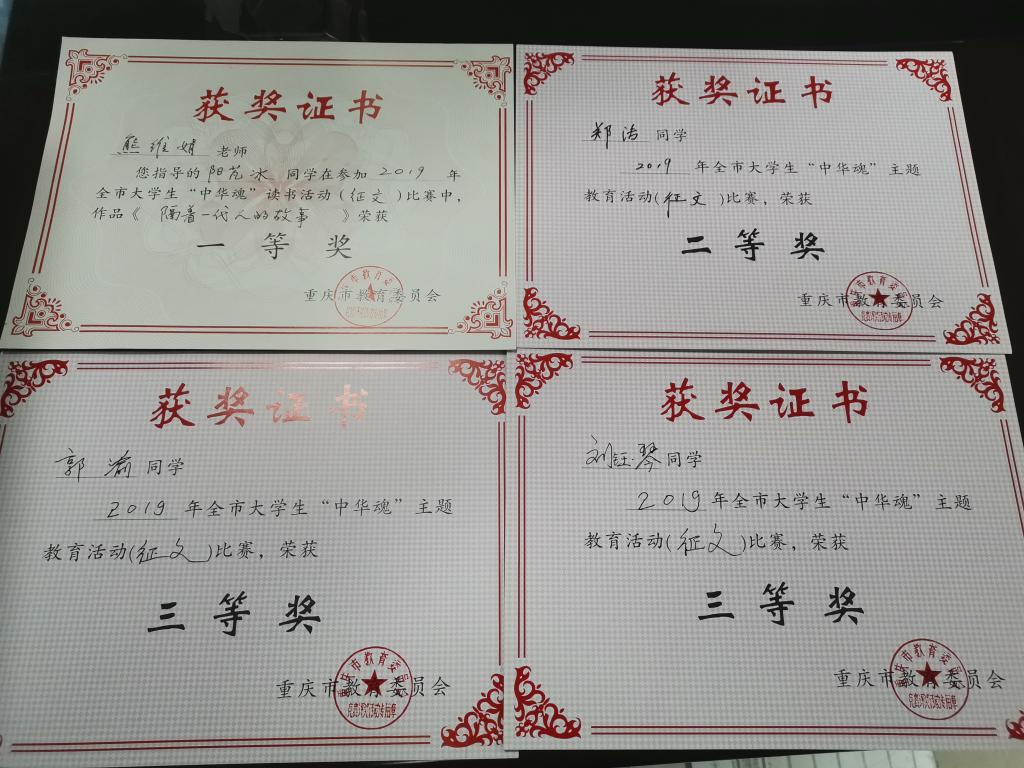 获奖证书
熊维娟 老师
您指导的 阳芃冰 同学在参加 2019 年
全市大学生“中华魂”读书活动（征文）比赛中，
作品《 隔着一代人的故事 》荣获
一等奖
重庆市教育委员会
获奖证书
郑洁 同学
2019 年全市大学生“中华魂”主题
教育活动(征文)比赛，荣获
二等奖
重庆市教育委员会
获奖证书
郭渝 同学
2019 年全市大学生“中华魂”主题
教育活动(征文)比赛，荣获
三等奖
重庆市教育委员会
获奖证书
刘钰琴 同学
2019 年全市大学生“中华魂”主题
教育活动(征文)比赛，荣获
三等奖
重庆市教育委员会